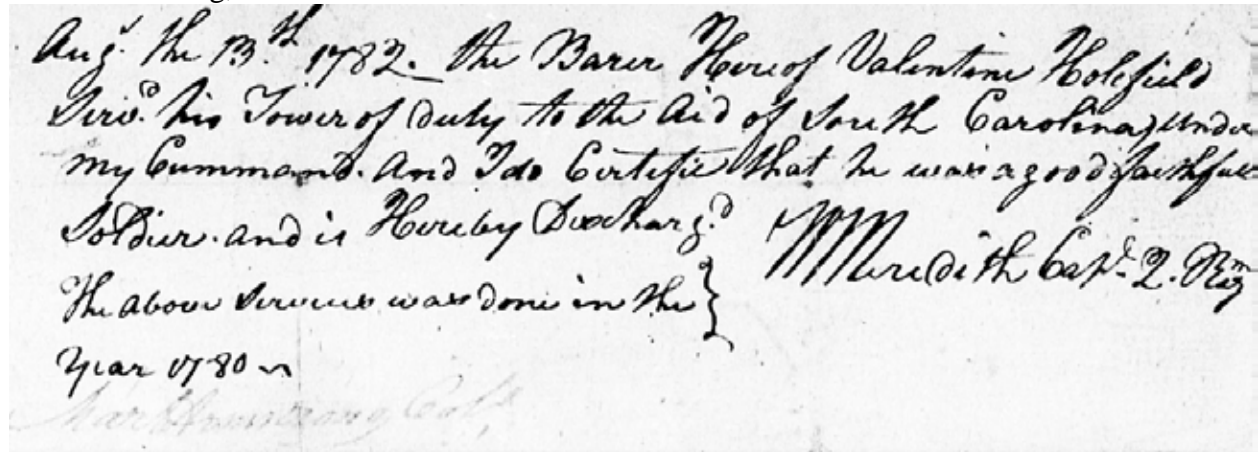 Augt. the 13.th 1782. the Barer Hereof Valentine Holefield
Servd. his Tower of duty to the Aid of South Carolina, under
my Cummand. And I do Certifie that he was a good & faithfull
Soldier. and is Hereby Discharg.d
WMeredith Capt. 2. Regm
The above Services was done in the }
Year 1780
Mar Armstrong Colo.